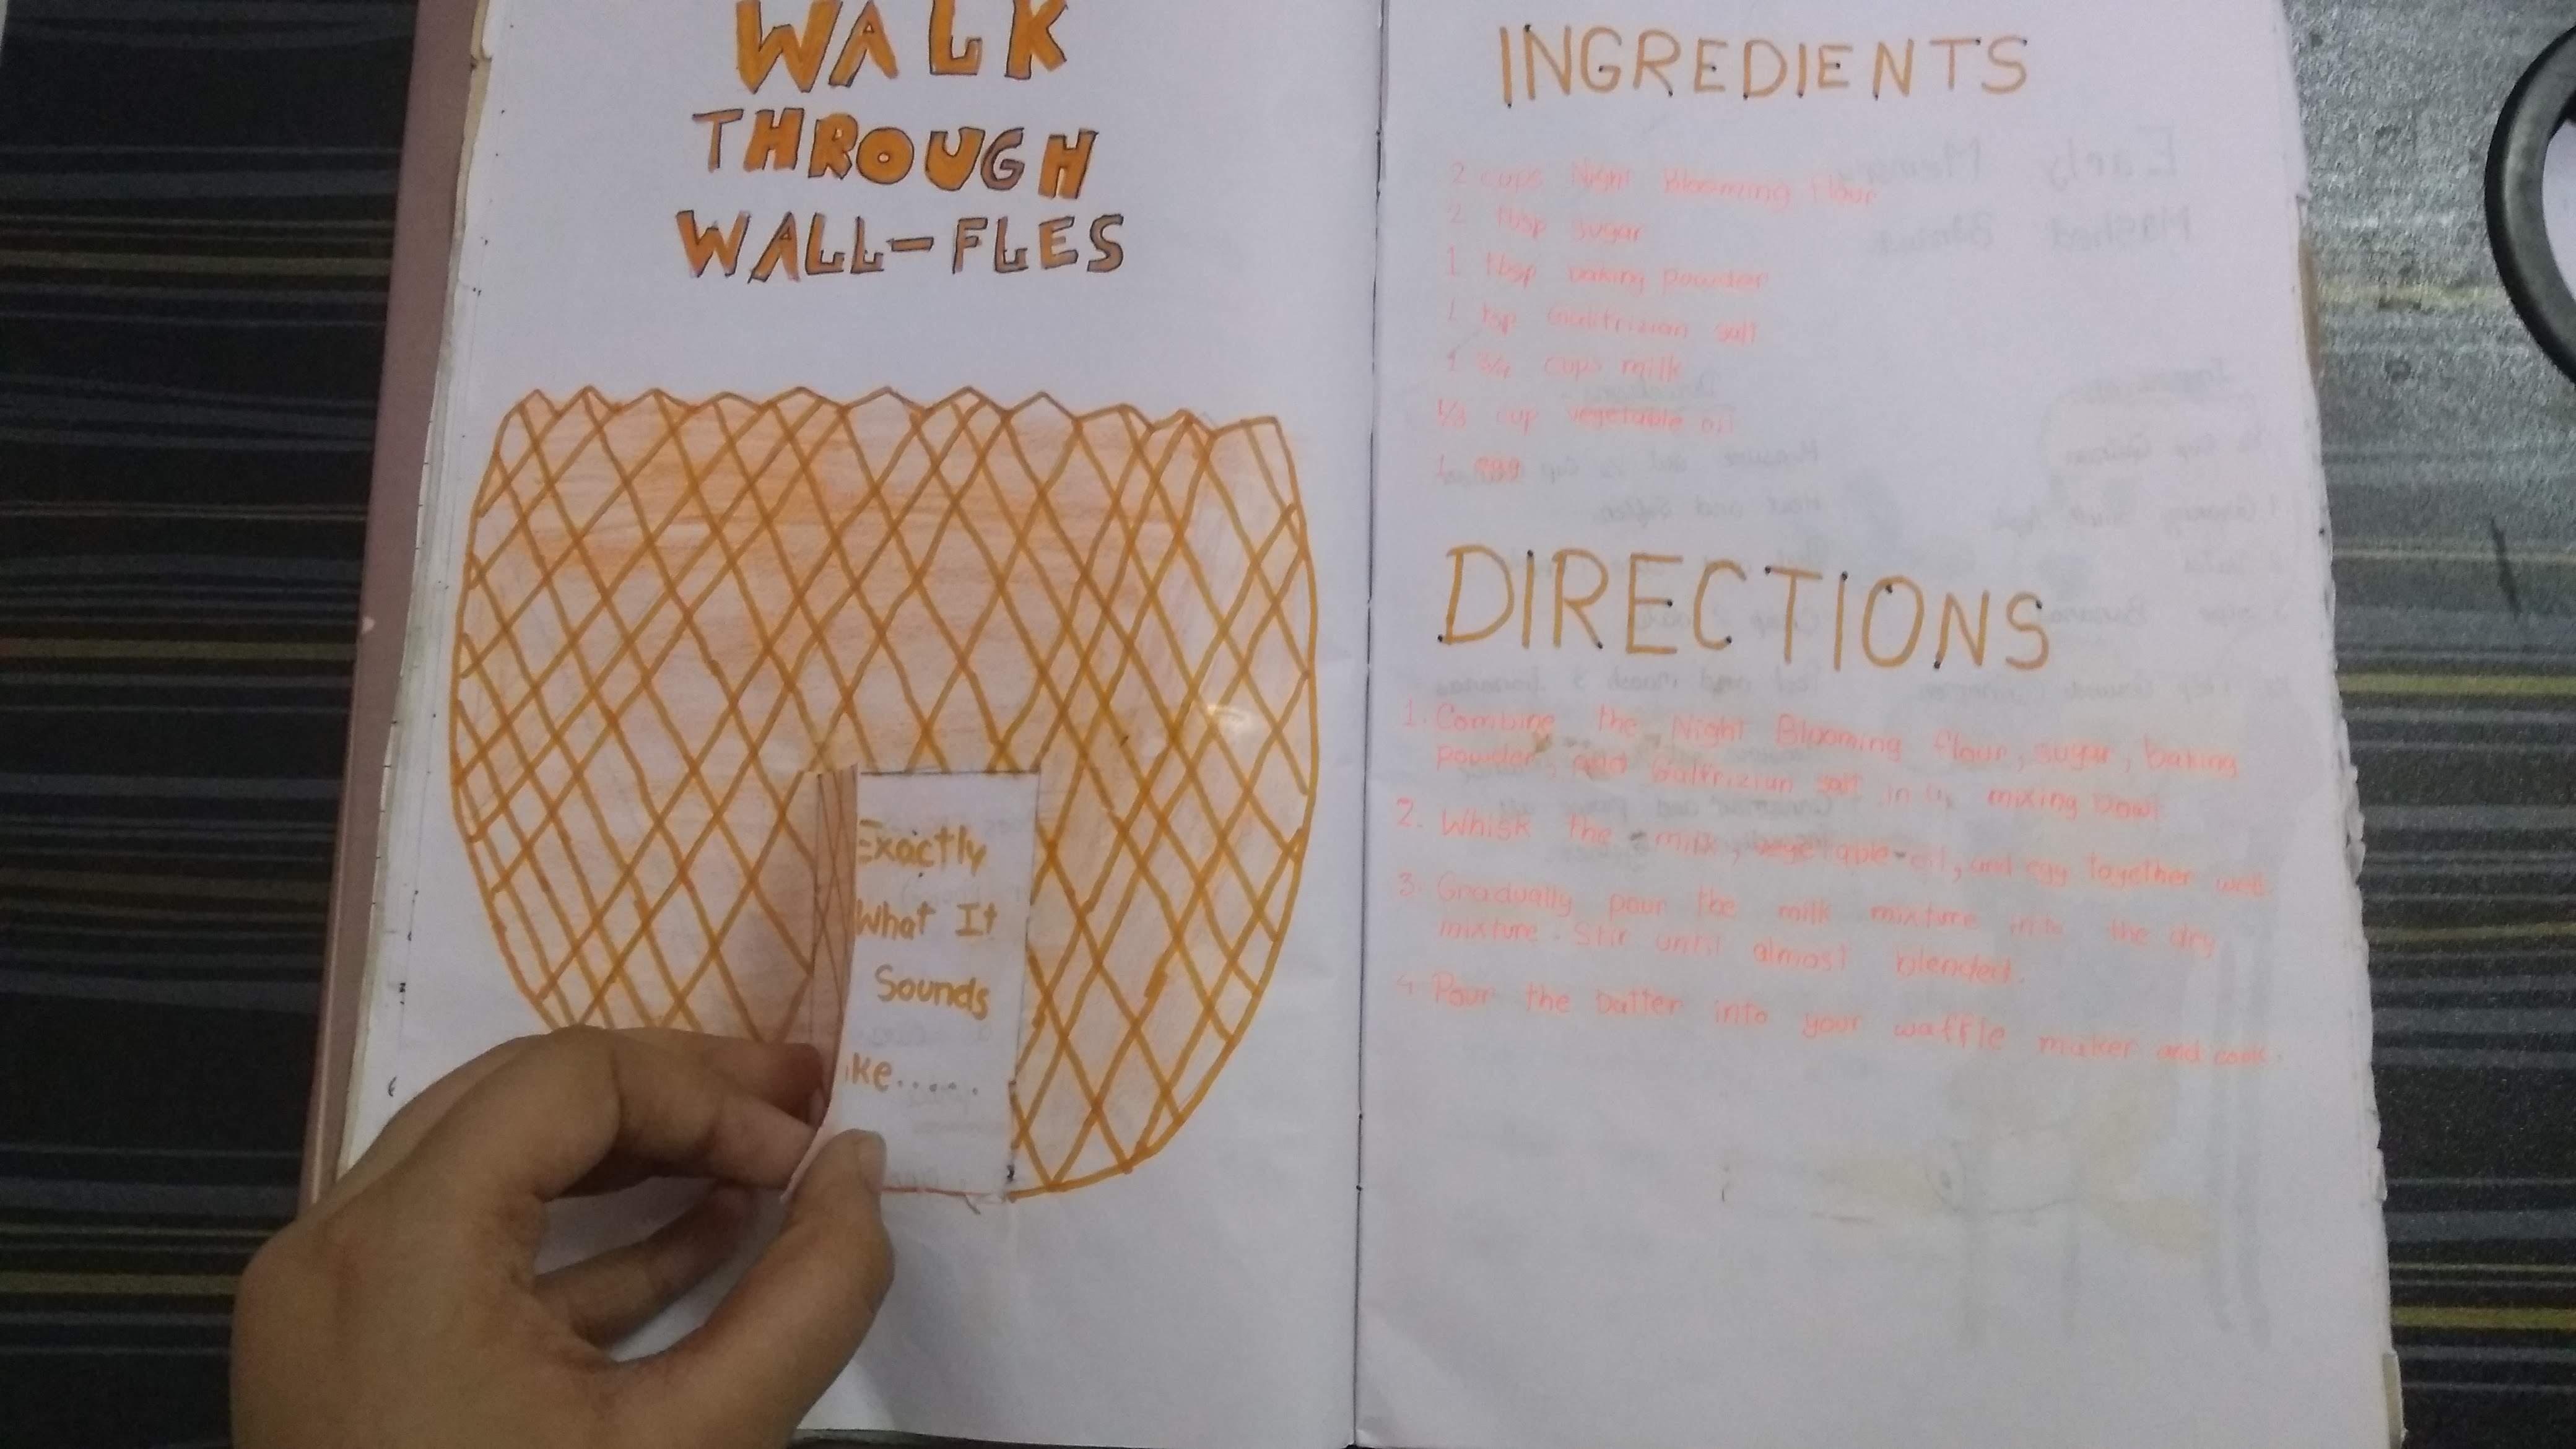 WALK
THROUGH
WALL-FLES
Exactly
What It
Sounds
ike......
INGREDIENTS
2 cups Night Blooming Flour
2 tbsp sugar
1 tbsp baking powder
1 tsp Galtrizian salt
1 3/4 cups milk
1/3 cup vegetable oil
1 egg
DIRECTIONS
1. Combine the Night Blooming flour, sugar, baking
powder, and Galtrizian salt in a mixing bowl
2. Whisk the milk, vegetable oil, and egg together well.
3. Gradually pour the milk mixture into the dry
mixture. Stir until almost blended.
4 Pour the batter into your waffle maker and cook.